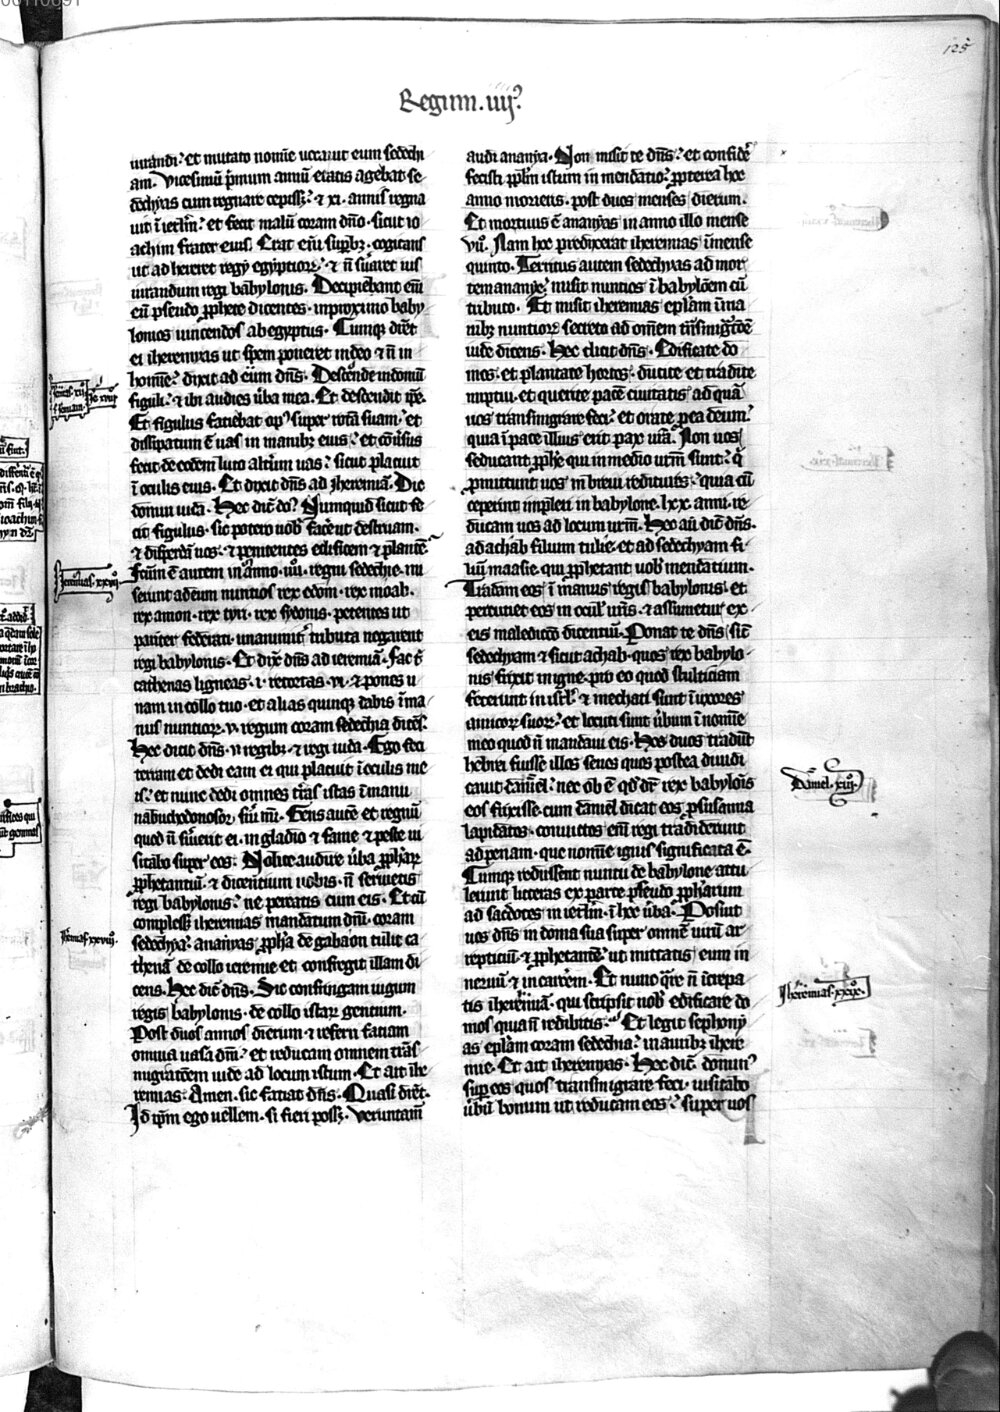 125
Regum .iiijº.
iurandi. et mutato noīe uocauit eum sedechi
am. Vicesimū pͥmum annū etatis agebat se
dechyas cum regnare cepisset. ⁊ xi. annis regna
uit ī ierl̄m. et fecit malū coram dn̄o. sicut io
achim frater eius. Erat em̄ suꝑbꝰ. cogitans
ut adhereret regi egyptioꝝ. ⁊ n̄ sͥuaret ius
iurandum regi babylonis. Decipiebant em̄
eū pseudo ꝓphete dicentes. inproximo baby
lonios uincendos ab egyptijs. Cumqꝫ dic̄et
ei iheremyas ut spem poneret in deo ⁊ n̄ in
homīe. dixit ad eum dn̄s. Descende in domū
figuli. ⁊ ibi audies ūba mea. Et descendit ip̄e.
Et figulus faciebat opꝰ super rotā suam. et
dissipatum ē uas in manibꝫ eius. et cōuͥsus
fecit de eodem luto altͥum uas. sicut placuit
ī oculis eius. Et dixit dn̄s ad iheremiā. Dic
domui iuda. Hec dic̄ dn̄s. Numquid sicut fe
cit figulus. sic potero uob̄ facͥe ut destruam.
⁊ disperdā uos. ⁊ penitentes edificem ⁊ plantē.
Fc̄um ē autem in anno .iiii. regni sedechie. mi
serunt ad eum nuntios rex edom. rex moab.
rex amon. rex tyri. rex sydonis. petentes ut
pariter federati. unanimitͥ tributa negarent
regi babylonis. Et dix̄ dn̄s ad ieremiā. Fac t̄
cathenas ligneas .v. retortas .vi. ⁊ pones u
nam in collo tuo. et alias quinqꝫ dabis ī ma
nus nuntioꝝ .v. regum coram sedechia dicēs.
Hec dicit dn̄s .v. regibꝫ. ⁊ regi iuda. Ego feci
terram et dedi eam ei qui placuit ī oculis me
is. et nunc dedi omnes t̄ras istas ī manu
nabuchodonosoꝝ sͥui mͥi. Gens autē et regnū
quod n̄ sͥuierit ei. in gladio ⁊ fame ⁊ peste ui
sitabo super eos. Nolite audire ūba ꝓphaꝝ
ꝓphetantiū. ⁊ dicentium uobis. n̄ seruietis
regi babylonis. ne pereatis cum eis. Et cū
complesset iheremias mandatum dn̄i. coram
sedechya. ananyas ꝓpha de gabaon tulit ca
thenā de collo ieremie et confregit illam di
cens. Hec dic̄ dn̄s. Sic confringam iugum
regis babylonis. de collo istaꝝ gentium.
Post duos annos dierum. ⁊ referri faciam
omnia uasa dn̄i. et reducam omnem trās
migratōem iude ad locum istum. Et ait ihe
remias. Amen. sic faciat dn̄s. Quasi dic̄et.
Id ip̄m ego uellem. si fieri possꝫ. Veruntam̄
audi ananya. Non misit te dn̄s. et confidͥe
fecisti ppl̄m istum in mendatio. ꝓpterea hoc
anno morieris. post duos menses dierum.
Et mortuus ē ananyas in anno illo mense
viiº. Nam hoc predixerat iheremias ī mense
quinto. Territus autem sedechyas ad mor
tem ananye. misit nuntios ī babylōem cū
tributo. Et misit iheremias epl̄am ī ma
nibꝫ nuntioꝝ secreto ad om̄em trāsmigͣtōē
iude dicens. Hec dicit dn̄s. Edificate do
mos. et plantate hortos. ducite et tradite
nuptui. et querite pacē ciuitatis ad quā
uos transmigrare feci. et orate pro ea deum.
quia ī pace illius erit pax ur̄a. Non uos
seducant ꝓphe qui in medio ur̄m sunt. qͥ
ꝓmittunt uos in breui redituros. quia cū
ceperint impleri in babylone .lxx. anni. re
ducam uos ad locum ur̄m. Hec aū dic̄ dn̄s.
ad achab filium culie. et ad sedechyam fi
liū maasie. qui ꝓphetant uob̄ mendatium.
Tradam eos ī manus regis babylonis. et
percutiet eos in ocul̄ ur̄is. ⁊ assumetur ex
eis maledictō dicentiū. Ponat te dn̄s sic̄
sedechyam ⁊ sicut achab. quos rex babylo
nis frixit in igne. pro eo quod stultitiam
fecerunt in isrl̄. ⁊ mechati sunt ī uxores
amicoꝝ suoꝝ. et locuti sunt ūbum ī noīe
meo quod n̄ mandaui eis. Hos duos tradūt
hebrei fuisse illos senes quos postea diuidi
cauit daniel. nec ob̄ ē qd̄ dr̄ rex babylōis
eos frixisse. cum daniel dicat eos ꝓ susanna
lapidatos. conuictos em̄ regi tradiderunt
ad penam. que nomīe ignis significata ē.
Cumqꝫ redissent nuntii de babylone attu
lerunt litteras ex parte pseudo ꝓpharum
ad sacͥdotes in ierl̄m. ī hec ūba. Posuit
uos dn̄s in domo sua super omnē uirū ar
repticiū ⁊ ꝓphetantē. ut mittatis eum in
neruū ⁊ in carcͥem. Et nunc qͣre n̄ īcrepa
tis iheremiā. qui scripsit uob̄ edificare do
mos quia n̄ redibitis. Et legit sephony
as epl̄am coram sedechia. in auribꝫ ihere
mie. Et ait iheremyas. Hec dic̄ dominꝰ.
suꝑ eos quos transmigrare feci. uisitabo
ūbū bonum ut reducam eos. super uos
Jeremias .xxvijº.
Jheremias .xxviijº.
Daniel .xiijº.
Jheremias .xxixº.